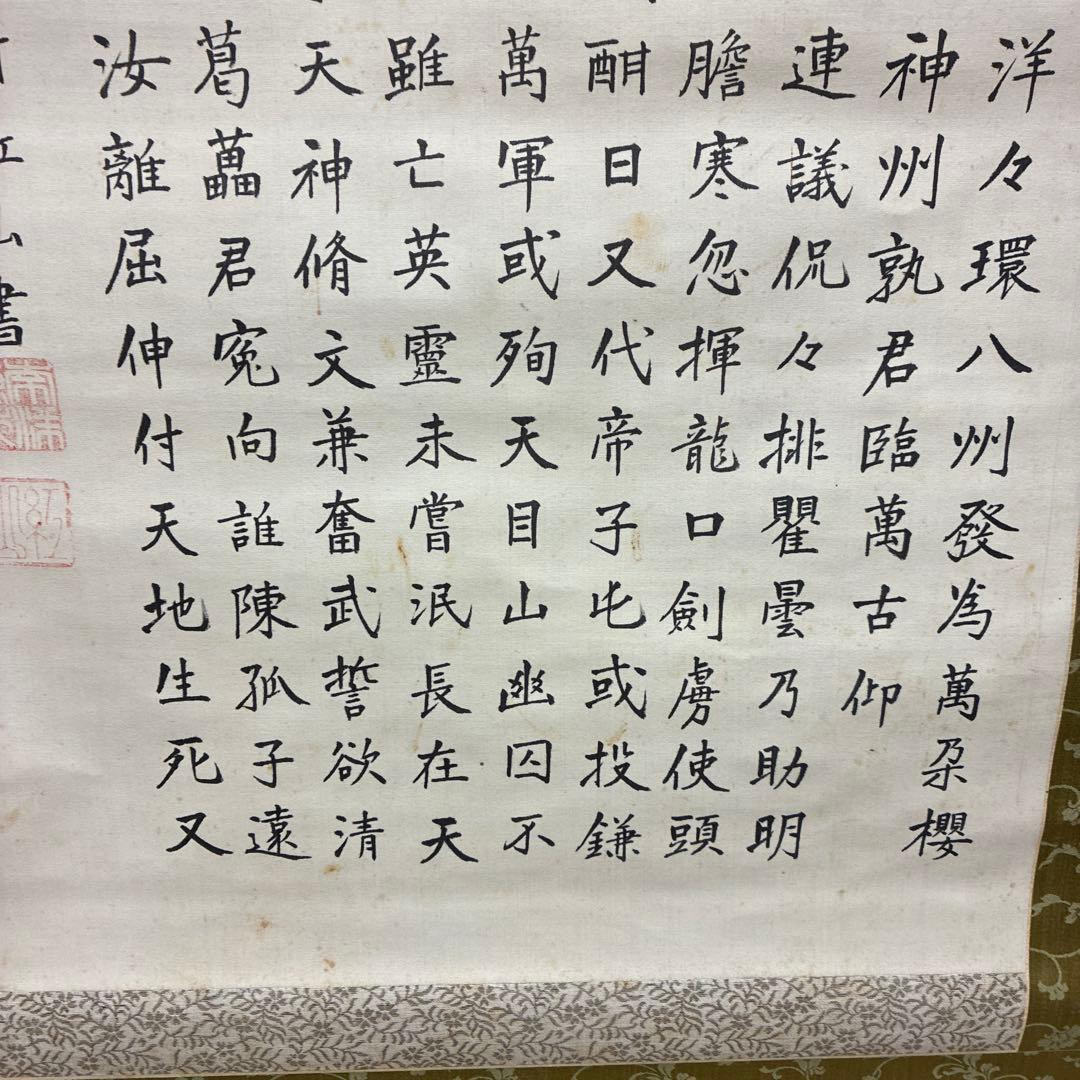 洋々環八州發為萬朵櫻
神州孰君臨萬古仰
連議侃々排瞿曇乃助明
膽寒忽揮龍口劍虜使頭
酣日又代帝子屯或投鎌
萬軍或殉天目山幽囚不
雖亡英靈未嘗泯長在天
天神脩文兼奮武誓欲清
葛藟君寃向誰陳孤子遠
汝離屈伸付天地生死又
山書